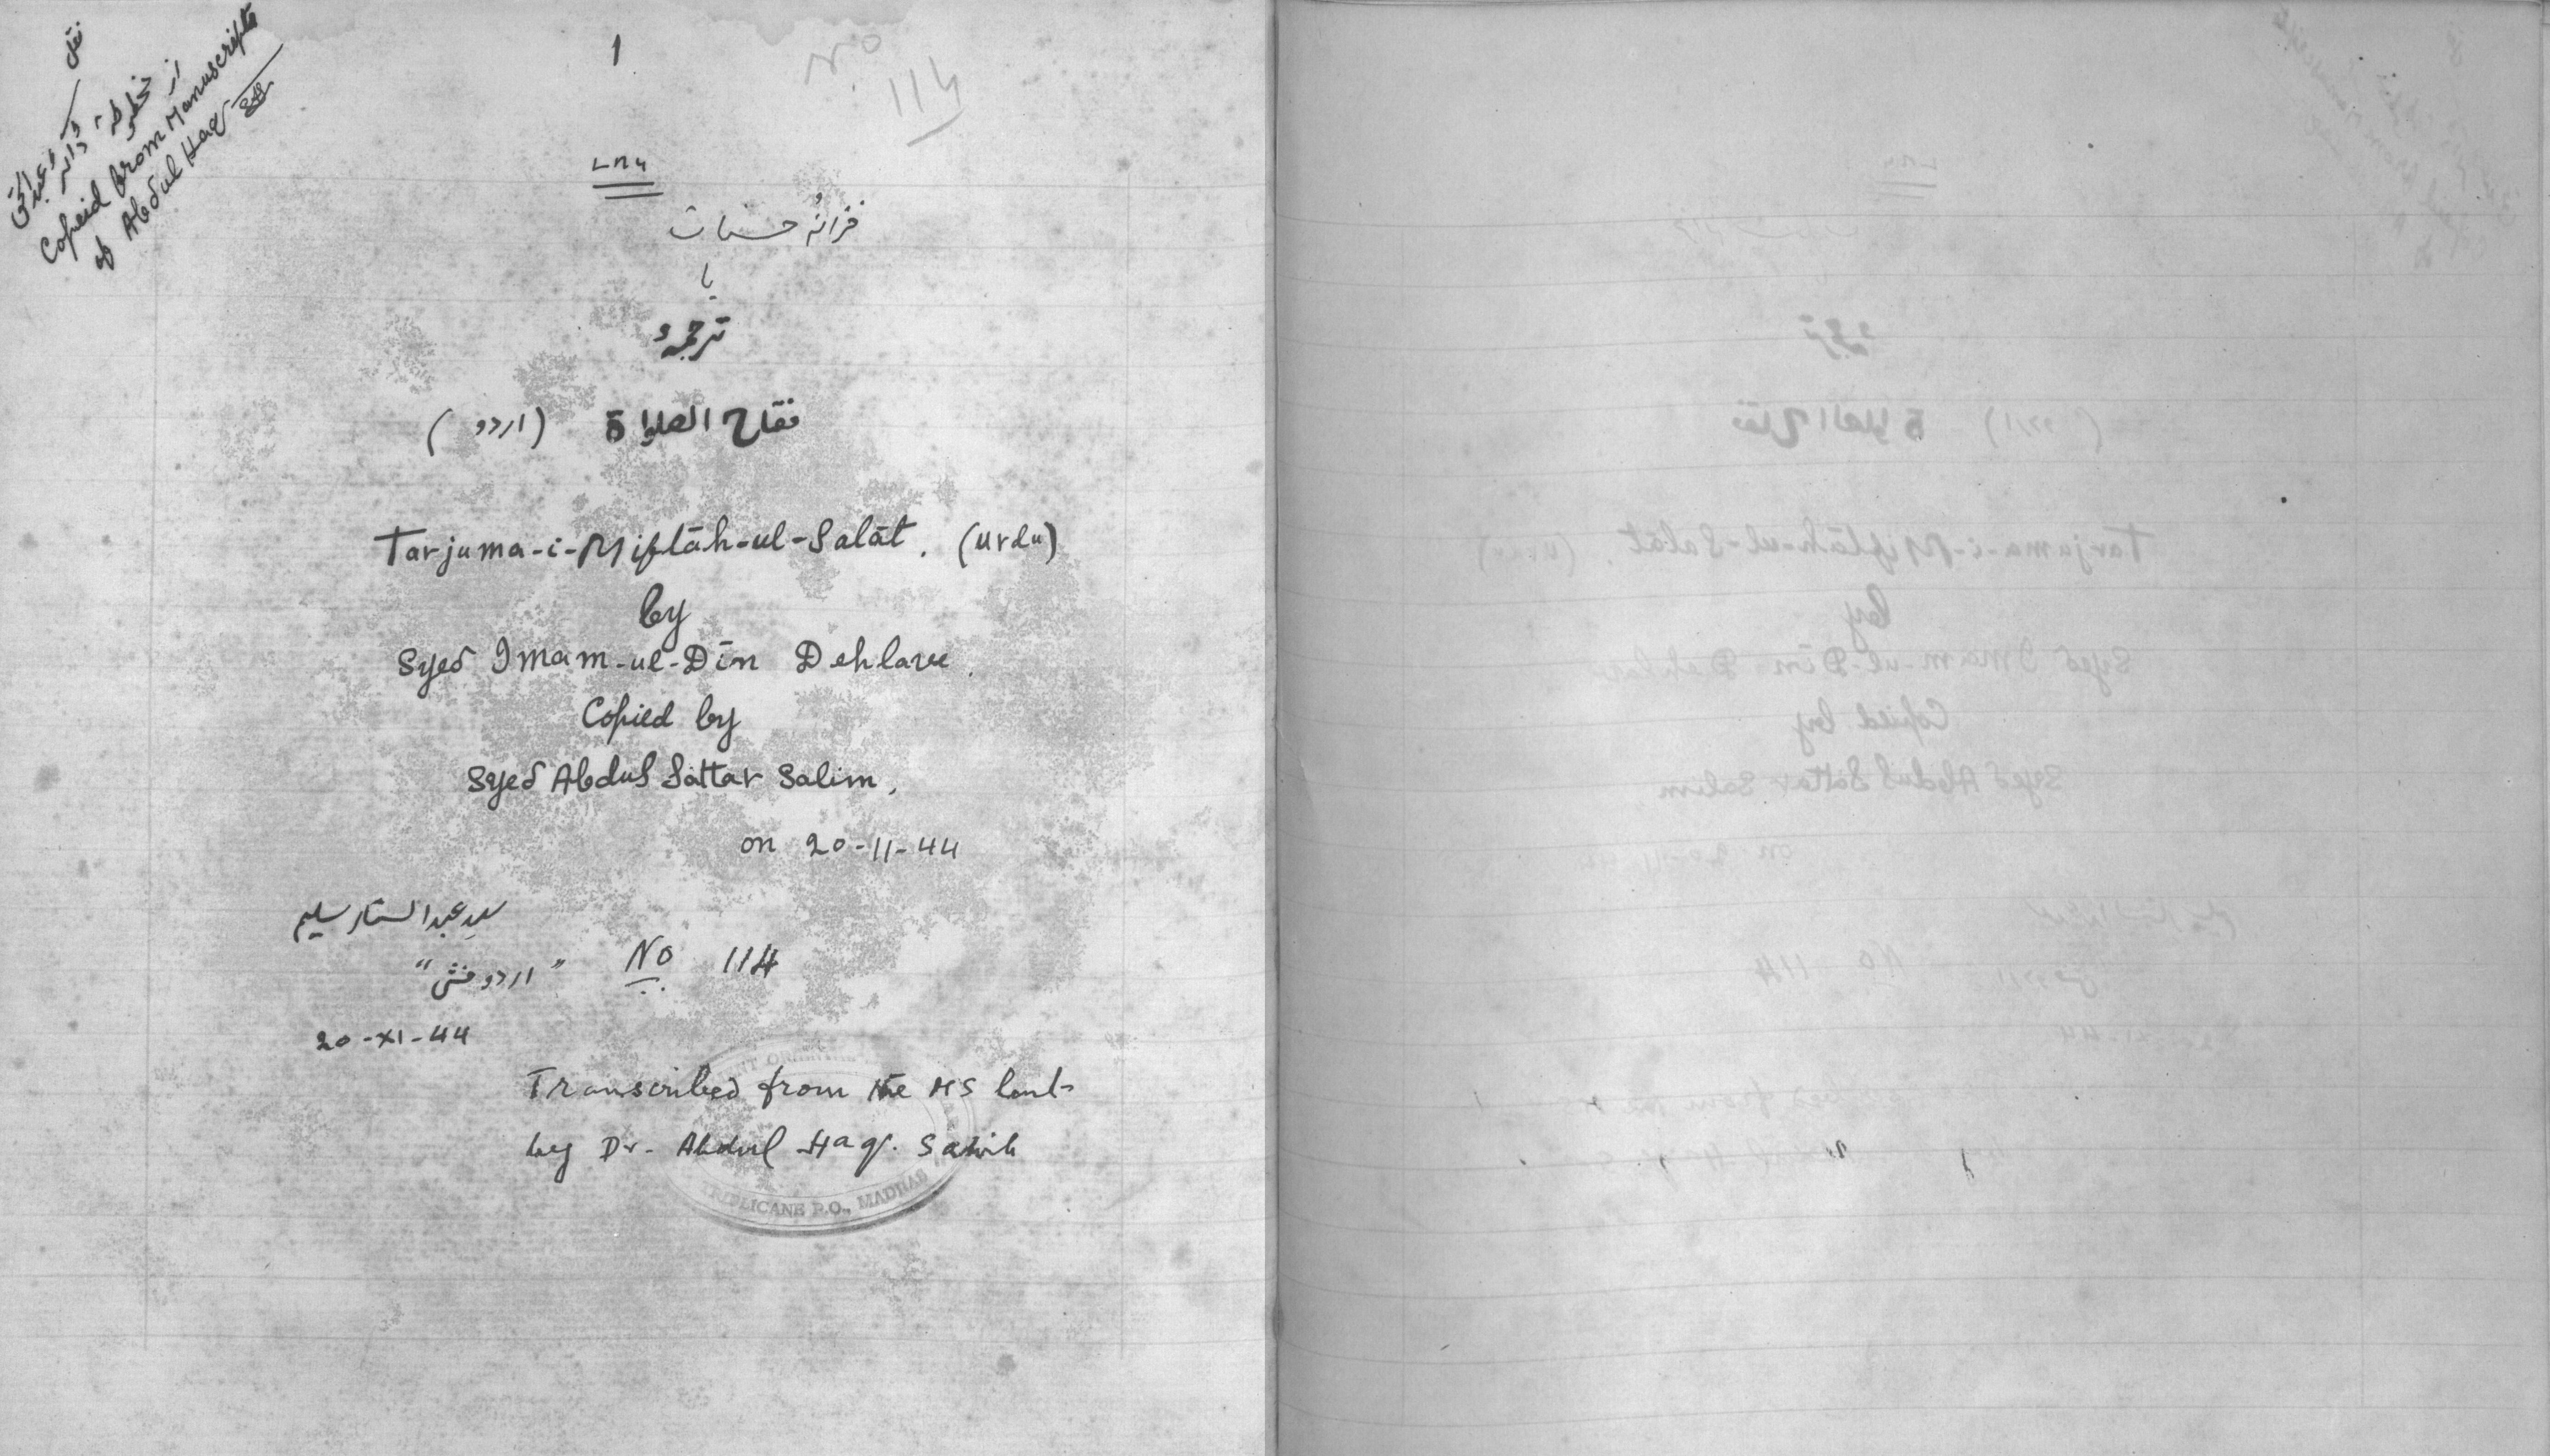 نقل
از مخطوطہ ڈاکٹر عبدالحق
Copeid from Manuscripts
of Abdul Haq
1
No
114
۷۸۶
خزانۂ حسنات
یا
ترجمہ
مفتاح الصلواة (اردو)
Tarjuma-i-Miftāh-ul-Salāt. (Urdu)
by
Syed Imam-ul-Dīn Dehlavee.
Copied by
Syed Abdul Sattar Salim,
on 20-11-44
سید عبدالستار سلیم
"اردو منشی"
No 114
20-XI-44
Transcribed from the MS lent
by Dr. Abdul Haq. Sahib
TRIPLICANE P.O., MADRAS